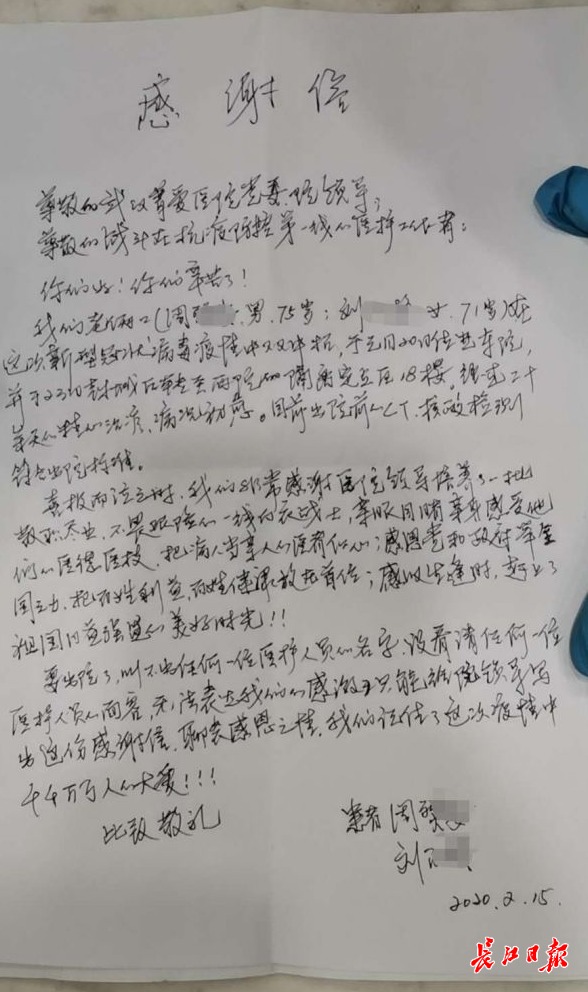 感谢信
尊敬的武汉普爱医院党委、院领导；
尊敬的战斗在抗疫防控第一线的医护工作者：
你们好！你们辛苦了！
我们老俩口（周 男.75岁；刘 女.71岁）在
这次新型冠状病毒疫情中双双中招，于元月20日住进本院，
并于23日封城后转至西院 隔离定点区18楼，经过二十
余天的精心治疗，病况初愈。目前出院前CT、核酸检测
符合出院标准。
喜极而泣之时，我们非常感谢医院领导培养了一批
敬职尽业，不畏艰险的一线白衣战士，亲眼目睹亲身感受他
们的医德医技，把病人当亲人的医者仁心；感恩党和政府举全
国之力，把百姓利益，百姓健康放在首位；感叹生逢时，赶上了
祖国日益强盛的美好时光！！
要出院了，叫不出任何一位医护人员的名字，没看清任何一位
医护人员的面容，无法表达我们的感激 只能给院领导写
出这份感谢信，聊表感恩之情，我们记住了这次疫情中
千千万万人的大爱！！！
此致 敬礼
患者 周
刘
2020.2.15.
长江日报